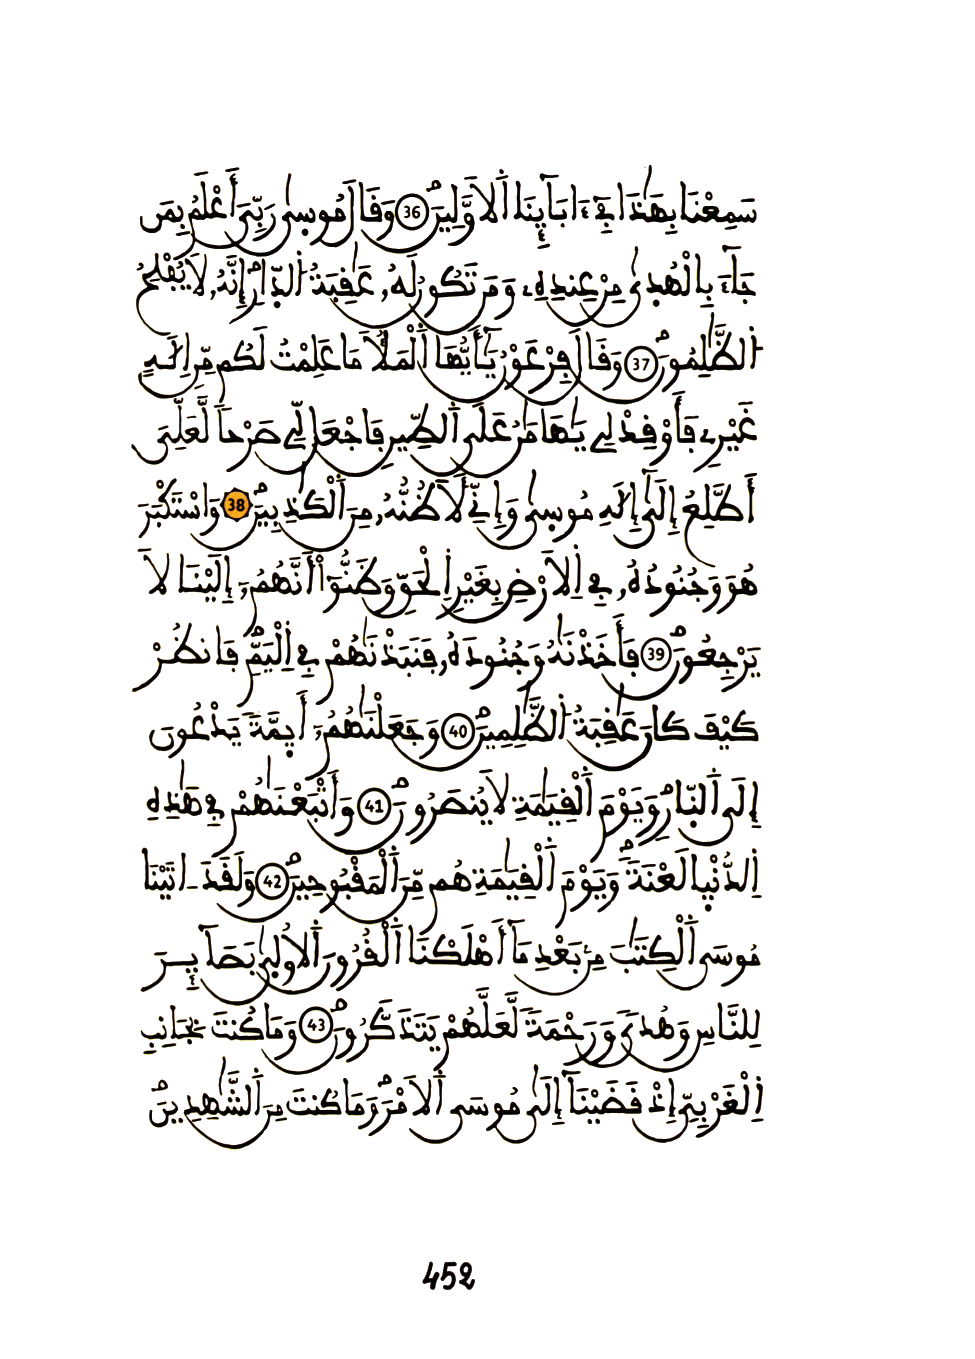 سَمِعْنَا بِهَٰذَا فِےٓ ءَابَآئِنَا اَ۬لَاوَّلِينَۖ 36 وَقَالَ مُوس۪ىٰ رَبِّيَ أَعْلَمُ بِمَن
جَآءَ بِالْهُد۪ىٰ مِنْ عِندِهِۦ وَمَن تَكُونُ لَهُۥ عَٰقِبَةُ اُ۬لدّ۪ارِۖ إِنَّهُۥ لَا يُفْلِحُ
اُ۬لظَّٰلِمُونَۖ 37 وَقَالَ فِرْعَوْنُ يَٰٓأَيُّهَا اَ۬لْمَلَأُ مَا عَلِمْتُ لَكُم مِّنِ اِلَٰهٍ
غَيْرِے فَأَوْقِدْ لِے يَٰهَٰمَٰنُ عَلَى اَ۬لطِّينِ فَاجْعَل لِّے صَرْحاٗ لَّعَلِّيَ
أَطَّلِعُ إِلَىٰٓ إِلَٰهِ مُوس۪ىٰ وَإِنِّے لَأَظُنُّهُۥ مِنَ اَ۬لْكَٰذِبِينَۖ 38 وَاسْتَكْبَرَ
هُوَ وَجُنُودُهُۥ فِے اِ۬لَارْضِ بِغَيْرِ اِ۬لْحَقِّ وَظَنُّوٓاْ أَنَّهُمُۥٓ إِلَيْنَا لَا
يَرْجِعُونَۖ 39 فَأَخَذْنَٰهُ وَجُنُودَهُۥ فَنَبَذْنَٰهُمْ فِے اِ۬لْيَمِّۖ فَانظُرْ
كَيْفَ كَانَ عَٰقِبَةُ اُ۬لظَّٰلِمِينَۖ 40 وَجَعَلْنَٰهُمُۥٓ أَئِمَّةٗ يَدْعُونَ
إِلَى اَ۬لنّ۪ارِۖ وَيَوْمَ اَ۬لْقِيَٰمَةِ لَا يُنصَرُونَۖ 41 وَأَتْبَعْنَٰهُمْ فِے هَٰذِهِ
اِ۬لدُّنْي۪ا لَعْنَةٗۖ وَيَوْمَ اَ۬لْقِيَٰمَةِ هُم مِّنَ اَ۬لْمَقْبُوحِينَۖ 42 وَلَقَدَ اٰتَيْنَا
مُوسَى اَ۬لْكِتَٰبَ مِنۢ بَعْدِ مَآ أَهْلَكْنَا اَ۬لْقُرُونَ اَ۬لُاول۪ىٰ بَصَآئِرَ
لِلنَّاسِ وَهُدىٗ وَرَحْمَةٗ لَّعَلَّهُمْ يَتَذَكَّرُونَۖ 43 وَمَا كُنتَ بِجَانِبِ
اِ۬لْغَرْبِيِّ إِذْ قَضَيْنَآ إِلَىٰ مُوسَى اَ۬لَامْرَۖ وَمَا كُنتَ مِنَ اَ۬لشَّٰهِدِينَۖ
452